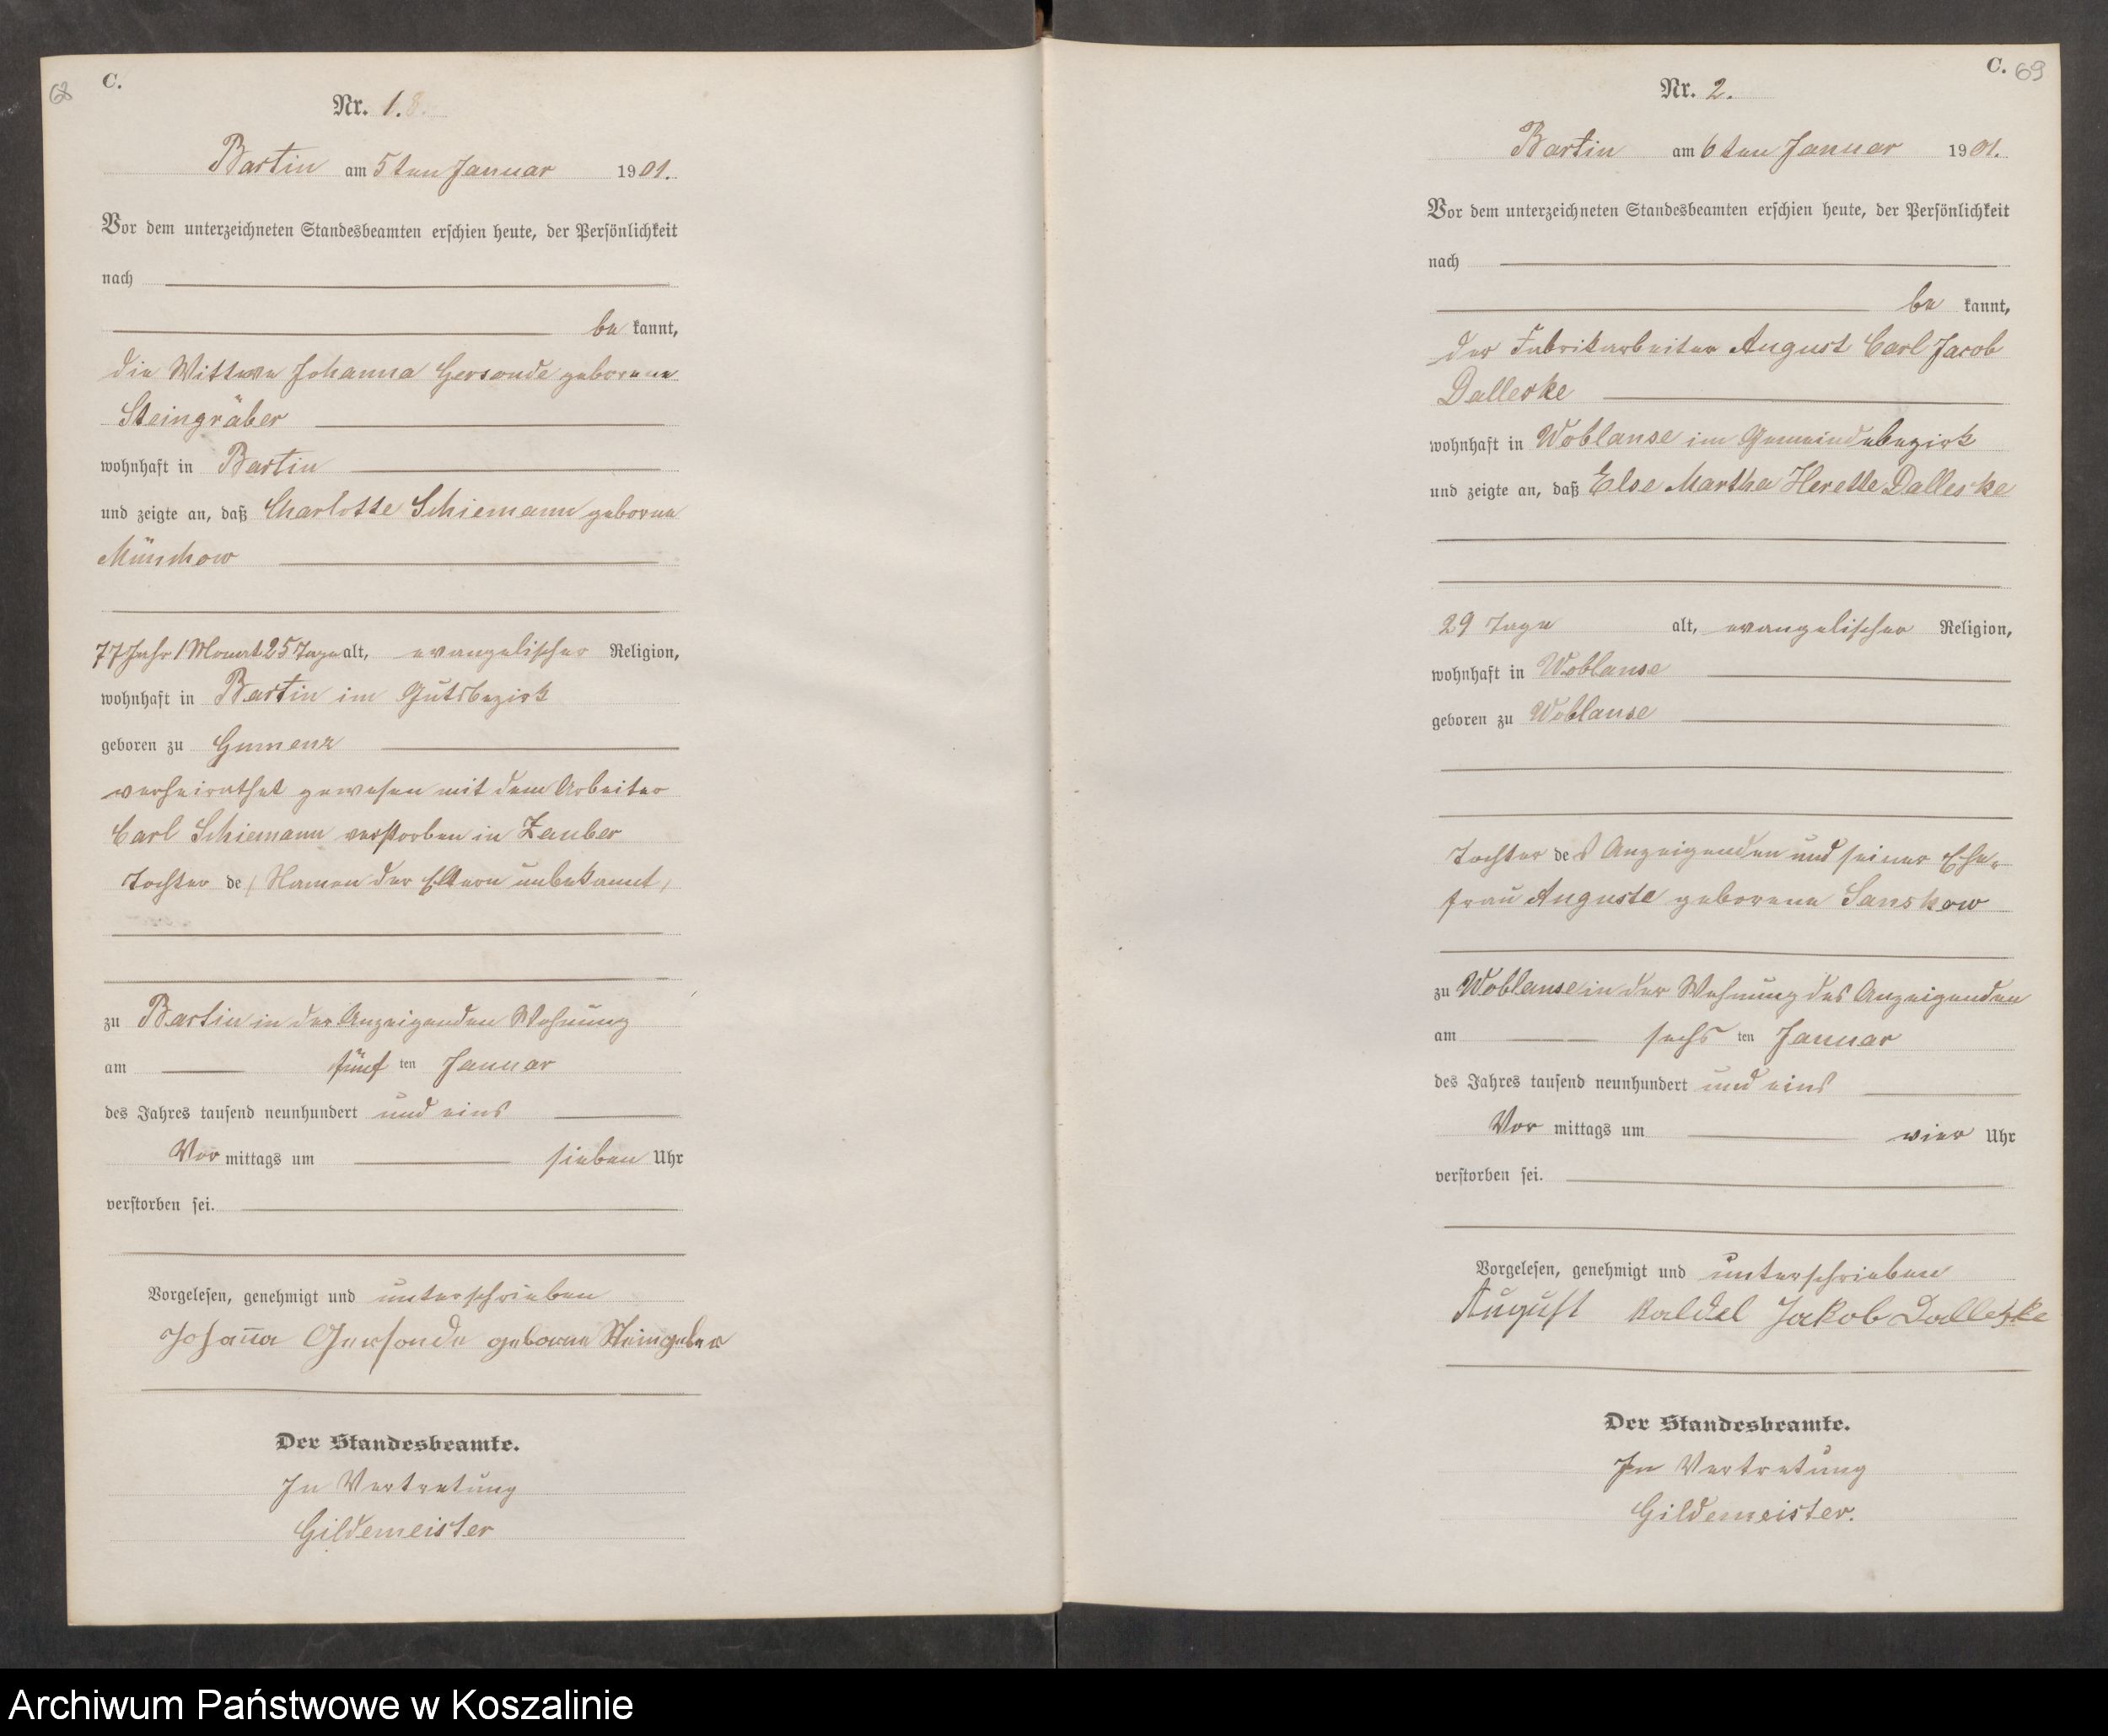 68
C.
Nr. 1.
Bartin am 5ten Januar 1901.
Vor dem unterzeichneten Standesbeamten erschien heute, der Persönlichkeit
nach
be kannt,
die Wittwe Johanna Gersonde geborene
Steingräber
wohnhaft in Bartin
und zeigte an, daß Charlotte Schiemann geborne
Münchow
77 Jahr 1 Monat 25 Tage alt, evangelischer Religion,
wohnhaft in Bartin im Gutsbezirk
geboren zu Gumenz
verheirathet gewesen mit dem Arbeiter
Carl Schiemann verstorben in Zauber
Tochter de / Namen der Eltern unbekannt /
zu Bartin in der Anzeigenden Wohnung
am fünf ten Januar
des Jahres tausend neunhundert und eins
Vor mittags um sieben Uhr
verstorben sei.
Vorgelesen, genehmigt und unterschrieben
Johanna Gersonde geborne Steingeber
Der Standesbeamte.
In Vertretung
Gildemeister
C. 69
Nr. 2.
Bartin am 6ten Januar 1901.
Vor dem unterzeichneten Standesbeamten erschien heute, der Persönlichkeit
nach
be kannt,
der Fabrikarbeiter August Carl Jacob
Dalleske
wohnhaft in Woblanse im Gemeindebezirk
und zeigte an, daß Else Martha Dalleske
29 Tage alt, evangelischer Religion,
wohnhaft in Woblanse
geboren zu Woblanse
Tochter des Anzeigenden und seiner Ehe-
frau Auguste geborene Sanskow
zu Woblanse in der Wohnung des Anzeigenden
am sechs ten Januar
des Jahres tausend neunhundert und eins
Vor mittags um vier Uhr
verstorben sei.
Vorgelesen, genehmigt und unterschrieben
August Jakob Dalleske
Der Standesbeamte.
In Vertretung
Gildemeister.
Archiwum Państwowe w Koszalinie